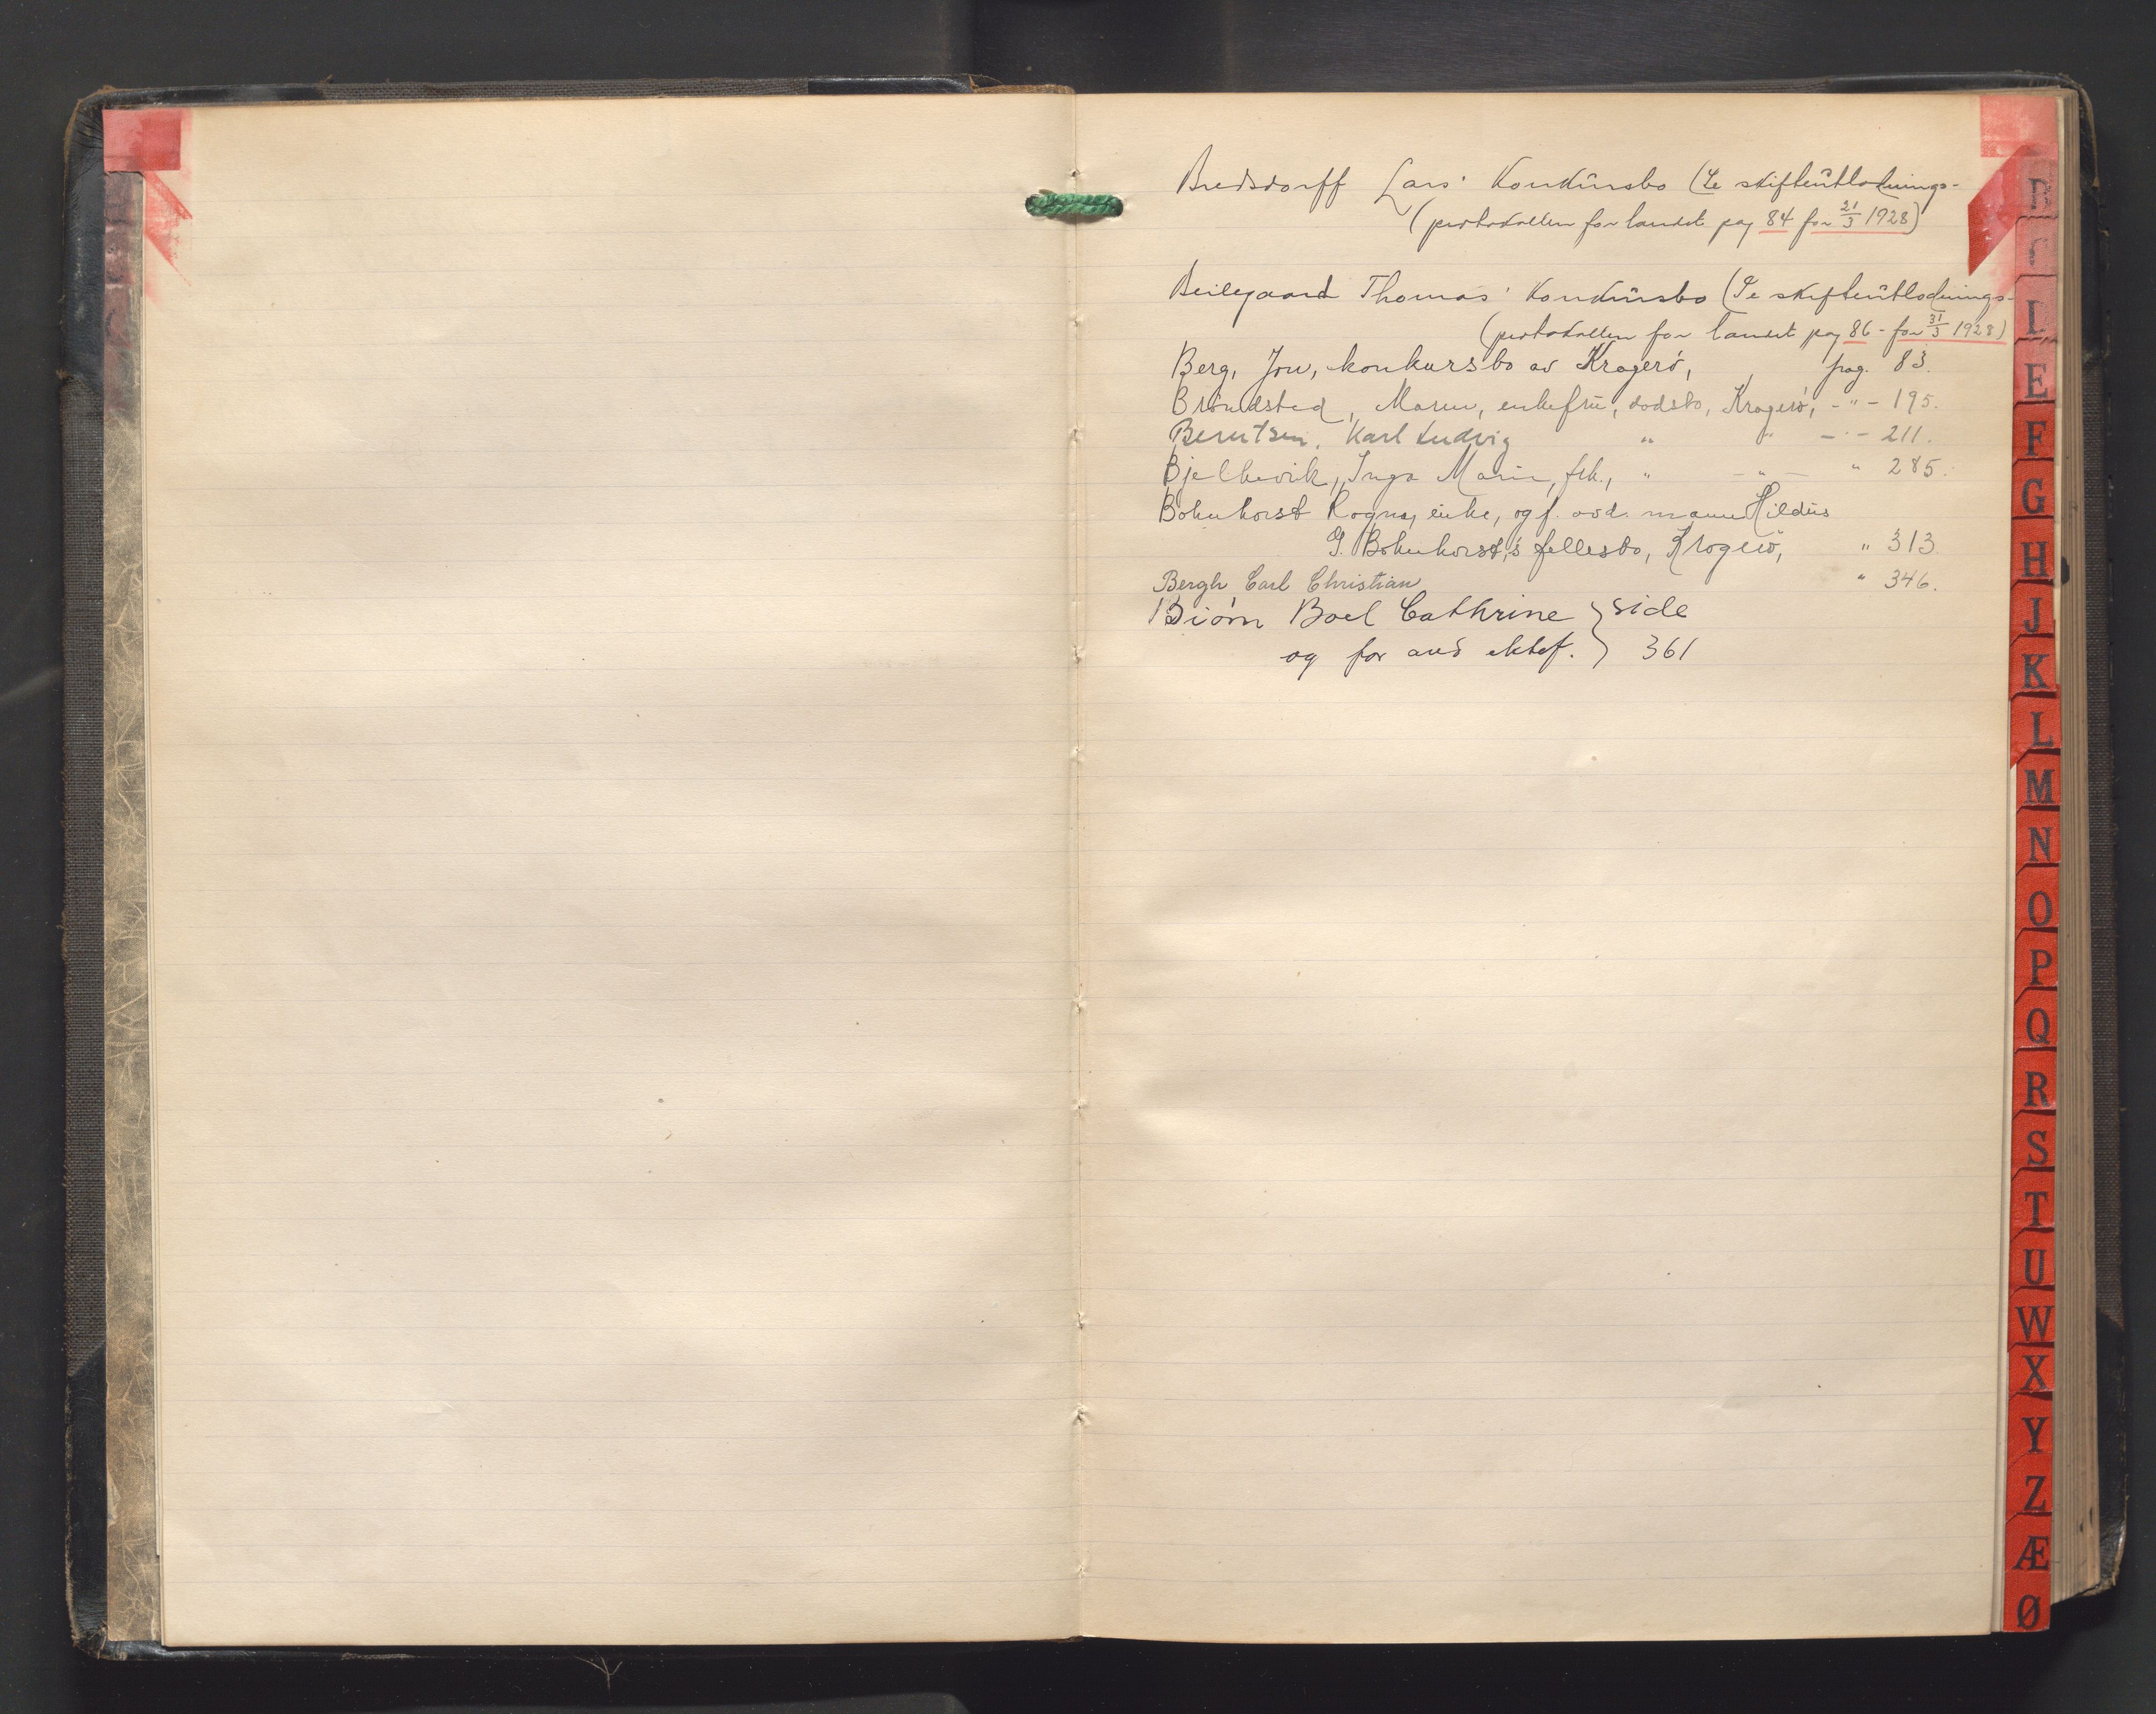 Bredsdorff Lars' Konkursbo (Se skifteutlodnings-
(protokollen for landet pag 84 for 21/3 1928)
Beilegaard Thomas' Konkursbo (Se skifteutlodnings-
(protokollen for landet pag 86 - for 31/3 1928)
Berg, Jon, konkursbo av Kragerö, pag. 83.
Bröndsted, Maren, enkefru, dødsbo, Kragerö, - " - 195.
Berntsen, Karl Ludvig " " - " - 211.
Bjelkevik, Inga Marie, frk., " — " — " 285.
Bohnhorst Ragna, enke, og f. avd. mann Hildus
G. Bohnhorst's fellesbo, Kragerø, " 313.
Bergh Carl Christian " 346.
Biørn Boel Cathrine } side
og før avd ektef. } 361
B
C
E
F
G
H
J
K
L
M
N
O
P
Q
R
S
T
U
W
X
Y
Z
Æ
Ø